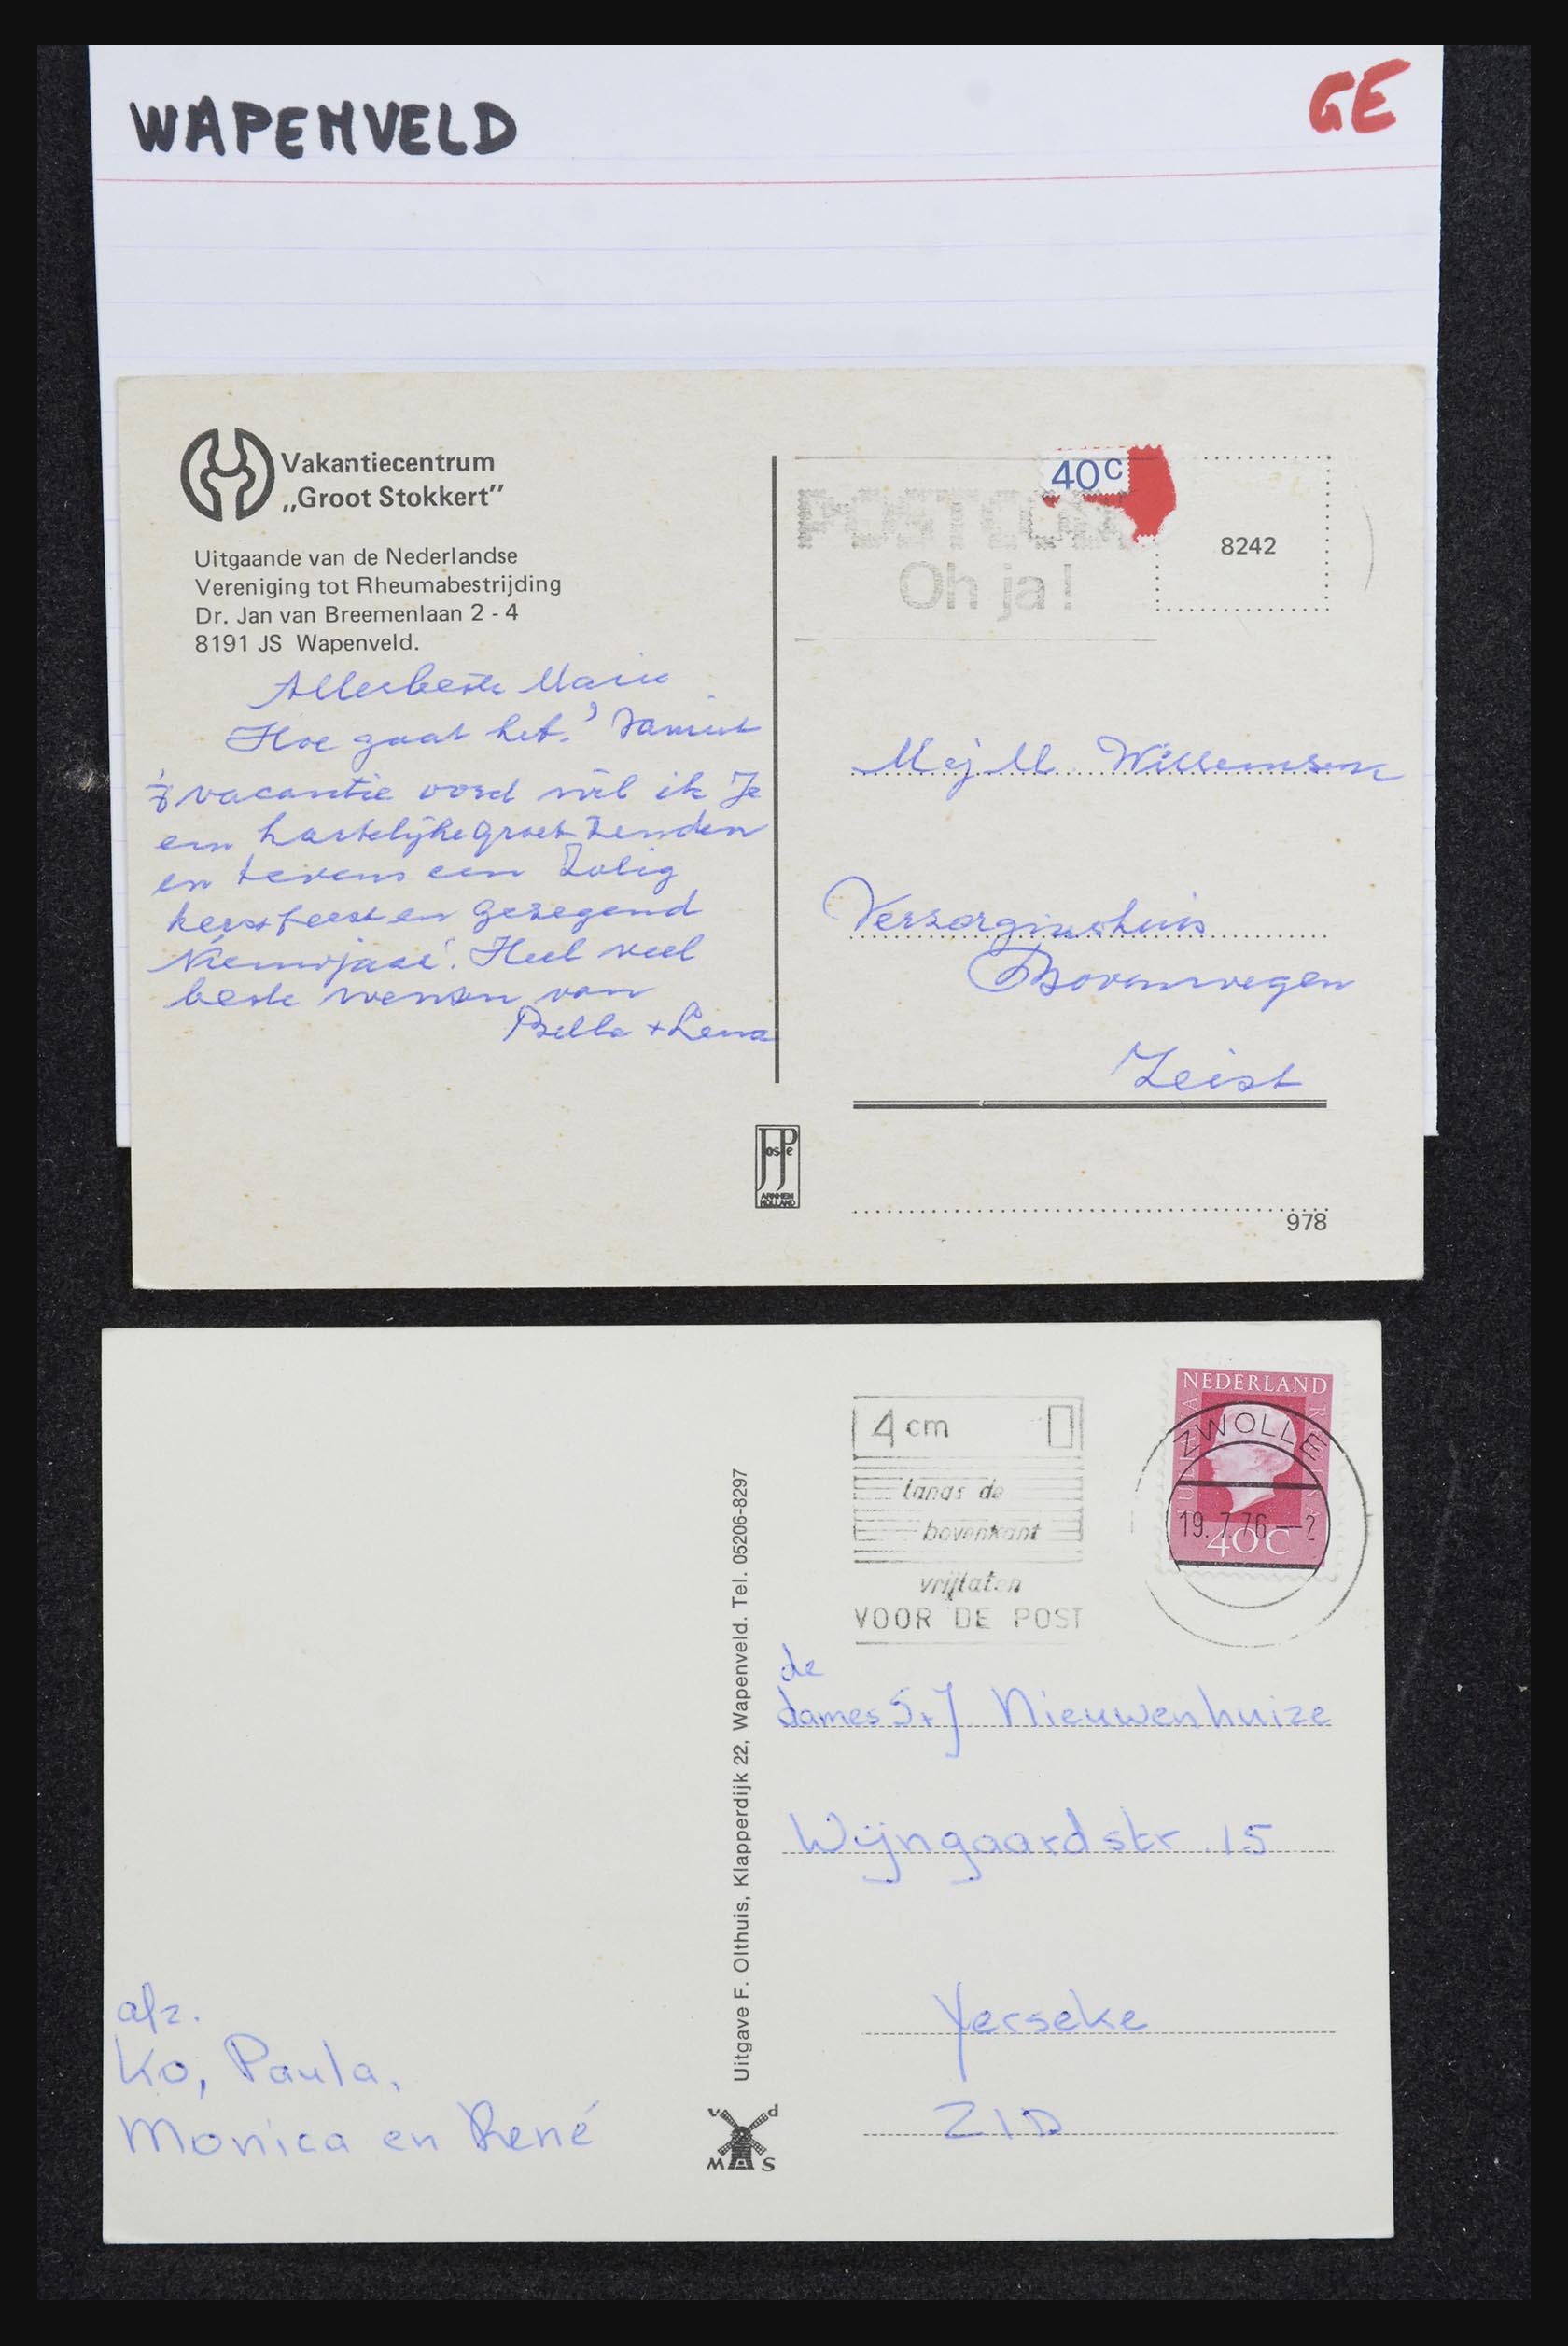 WAPENVELD
GE
Vakantiecentrum
„Groot Stokkert”
Uitgaande van de Nederlandse
Vereniging tot Rheumabestrijding
Dr. Jan van Breemenlaan 2 - 4
8191 JS Wapenveld.
Allerbeste Marie
Hoe gaat het?
vacantie oord wil ik Je
een hartelijke groet zenden
en tevens een Zalig
kerstfeest en gezegend
Nieuwjaar! Heel veel
beste wensen van
Bella + Lena
40c
POSTCODE
Oh ja!
8242
Mej M Willemsen
Verzorginshuis
Bovenwegen
Zeist
JosPe
ARNHEM
HOLLAND
978
4 cm
langs de
bovenkant
vrijlaten
VOOR DE POST
NEDERLAND
JULIANA REGINA
40c
ZWOLLE
19.7.76
de
dames S+J Nieuwenhuize
Wijngaardstr. 15
Yerseke
ZLD
Uitgave F. Olthuis, Klapperdijk 22, Wapenveld. Tel. 05206-8297
afz.
Ko, Paula,
Monica en René
v d
M A S